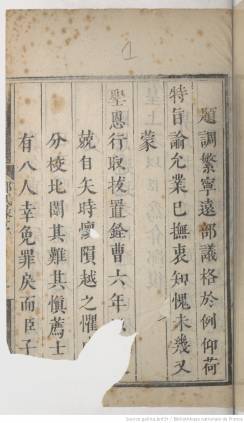 1
題調繁寧遠部議格於例仰荷
特旨諭允業已撫衷知愧未幾又
蒙
聖恩行取拔置銓曹六年
兢自矢時懷隕越之懼
分校北闈其難其慎薦士
有八人幸免罪矣而臣子
Source gallica.bnf.fr / Bibliothèque nationale de France